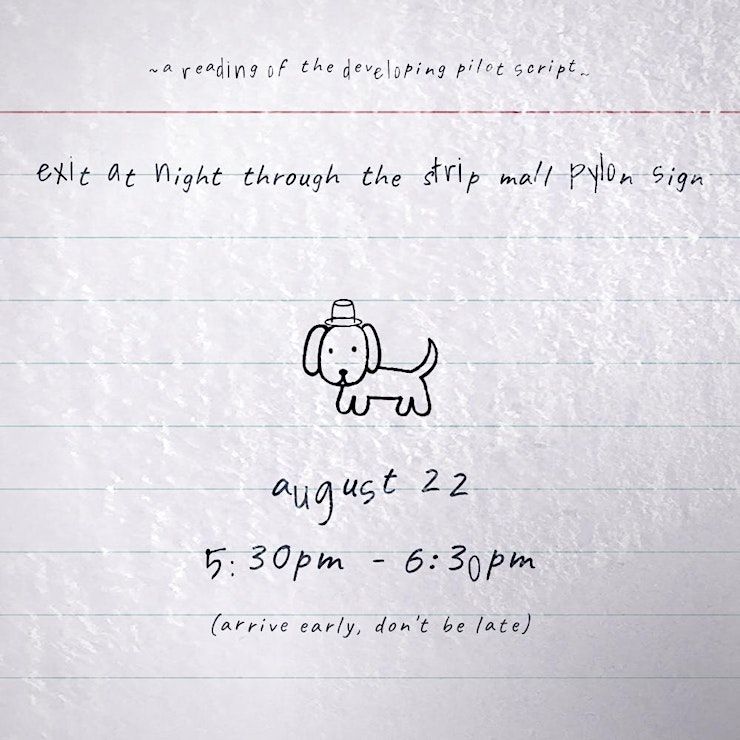 ~a reading of the developing pilot script~
exit at night through the strip mall pylon sign
august 22
5:30pm - 6:30pm
(arrive early, don't be late)